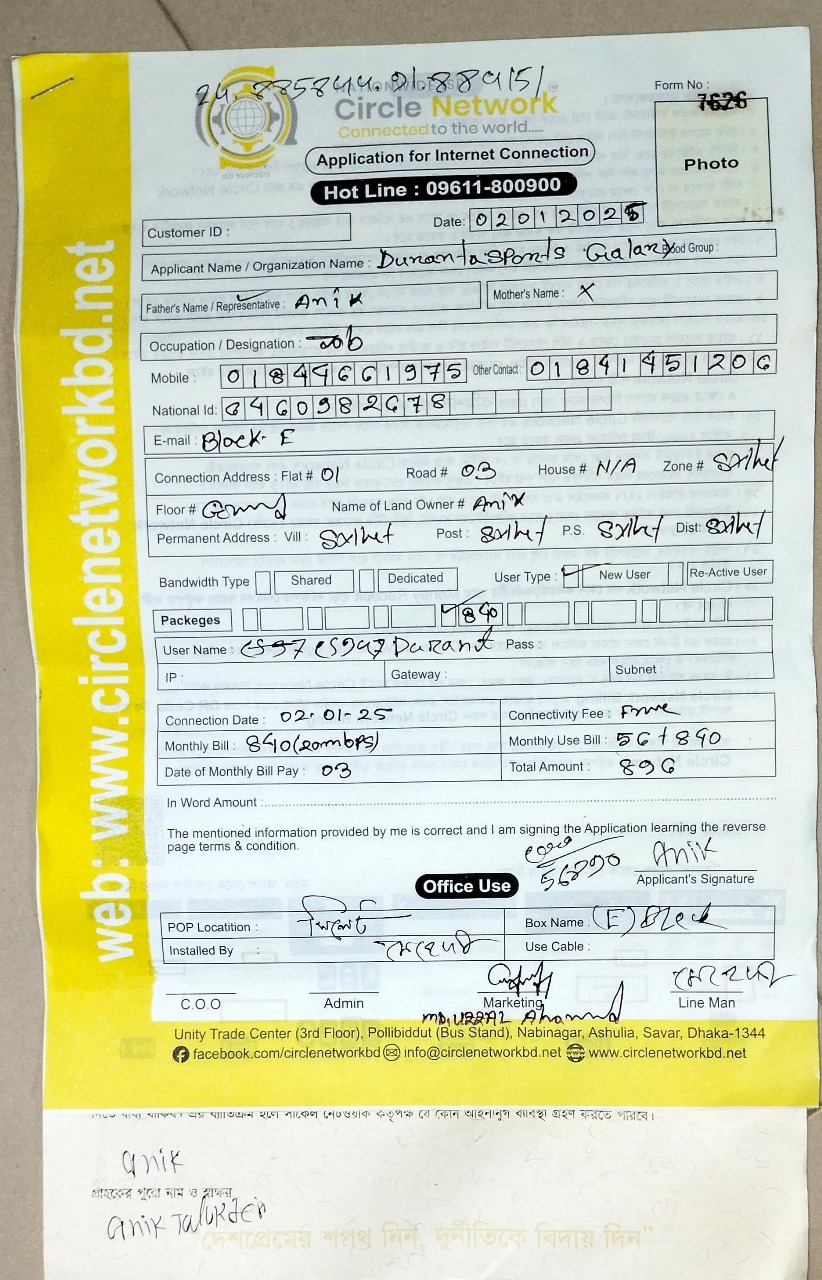 24.885844.91.889151
NATIONWIDE ISP
Circle Network
Connected to the world.....
ISO 9001:2015
Form No :
7626
Photo
Application for Internet Connection
Hot Line : 09611-800900
Date: 02012025
Customer ID :
Applicant Name / Organization Name : Duranta Sports Galary Blood Group :
Father's Name / Representative : Anik Mother's Name : X
Occupation / Designation : Job
Mobile : 01844661975 Other Contact : 01841451206
National Id: 6460982678
E-mail : Block- E
Connection Address : Flat # 01 Road # 03 House # N/A Zone # Sylhet
Floor # Ground Name of Land Owner # Anik
Permanent Address : Vill : Sylhet Post : Sylhet P.S. Sylhet Dist: Sylhet
Bandwidth Type Shared Dedicated User Type : New User Re-Active User
Packeges 840
User Name : Durant Pass :
IP : Gateway : Subnet :
Connection Date : 02.01-25 Connectivity Fee : Free
Monthly Bill : 840(20mbps) Monthly Use Bill : 56+840
Date of Monthly Bill Pay : 03 Total Amount : 896
In Word Amount :
The mentioned information provided by me is correct and I am signing the Application learning the reverse
page terms & condition.
Anik
Applicant's Signature
Office Use
POP Locatition : সিলেট Box Name : (E) Block
Installed By : Use Cable :
C.O.O Admin Marketing Line Man
Unity Trade Center (3rd Floor), Pollibiddut (Bus Stand), Nabinagar, Ashulia, Savar, Dhaka-1344
facebook.com/circlenetworkbd info@circlenetworkbd.net www.circlenetworkbd.net
web: www.circlenetworkbd.net
anik
গ্রাহকের পুরো নাম ও স্বাক্ষর
anik Talukder
"দেশপ্রেমের শপথ নিন, দুর্নীতিকে বিদায় দিন"